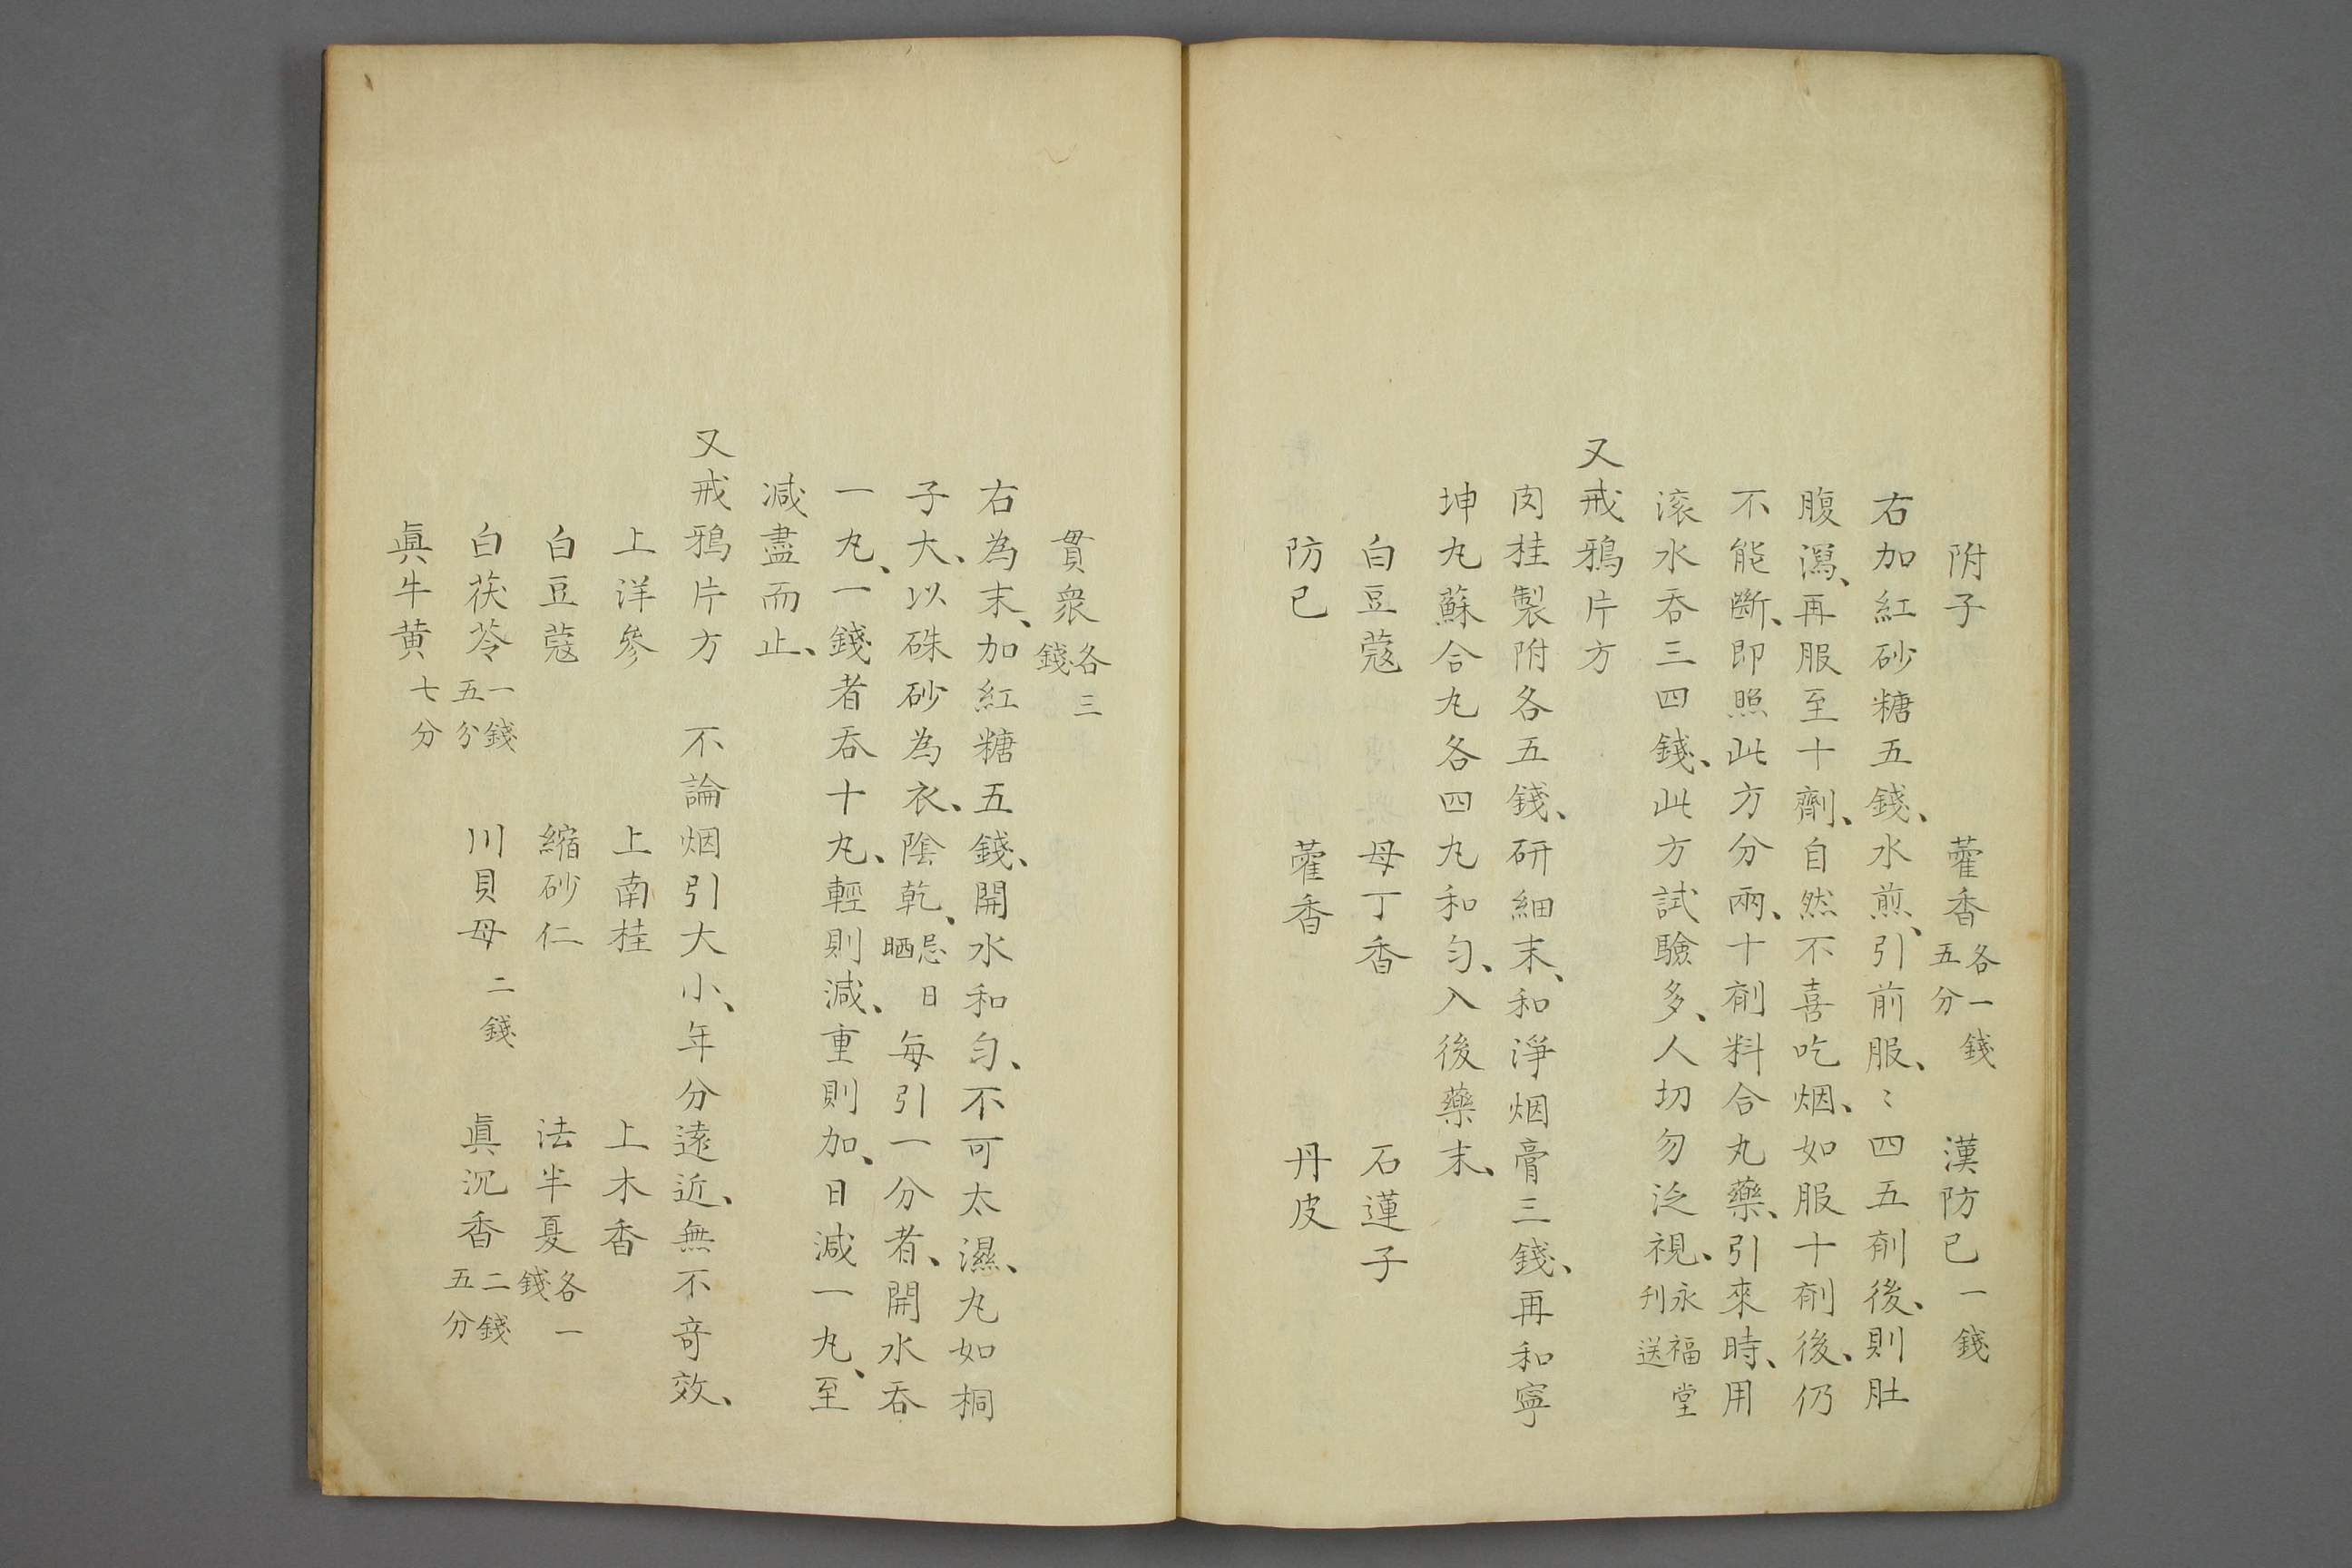 附子　藿香各一錢五分　漢防已一錢
右加紅砂糖五錢、水煎、引前服、〻四五剤後、則肚
腹瀉、再服至十劑、自然不喜吃烟、如服十剤後、仍
不能斷、即照此方分兩、十剤料合丸藥、引來時、用
滚水吞三四錢、此方試驗多、人切勿泛視、永福堂刋送
又戒鴉片方
肉桂製附各五錢、研細末、和淨烟膏三錢、再和寧
坤丸蘇合丸各四丸和匀、入後藥末、
白豆蔻　母丁香　石蓮子
防已　藿香　丹皮
貫衆各三錢
右為末、加紅糖五錢、開水和匀、不可太濕、丸如桐
子大、以硃砂為衣、陰乾、忌日晒　每引一分者、開水吞
一丸、一錢者吞十丸、輕則減、重則加、日減一丸、至
減盡而止、
又戒鴉片方　不論烟引大小、年分遠近、無不竒效、
上洋參　上南桂　上木香
白豆蔻　縮砂仁　法半夏各一錢
白茯苓一錢五分　川貝母二錢　眞沉香二錢五分
眞牛黄七分